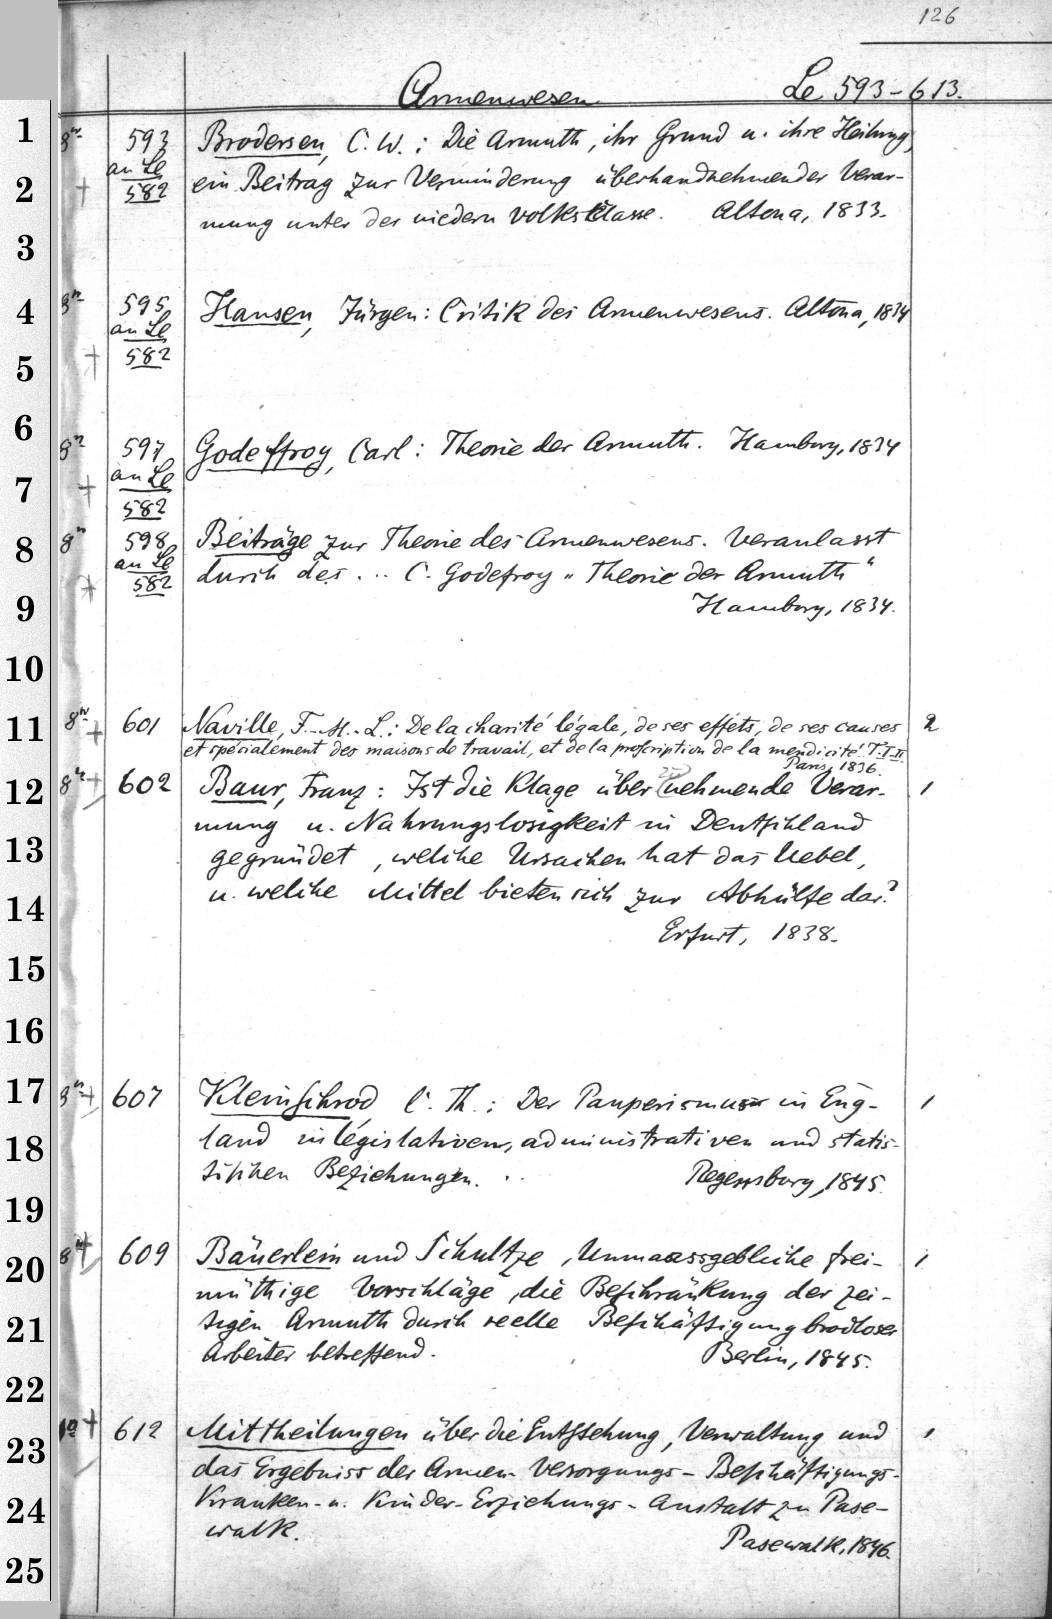 126
Armenwesen Le 593-613.
1
8º 593 Brodersen, C. W.: Die Armuth, ihr Grund u. ihre Heilung,
an Le
2
582 ein Beitrag zur Verminderung überhandnehmender Verar-
mung unter der niedern Volksklasse. Altona, 1833.
3
4
8º 595 Hansen, Jürgen: Critik des Armenwesens. Altona, 1834
an Le
5
582
6
8º 597 Godeffroy, Carl: Theorie der Armuth. Hamburg, 1834
an Le
7
582
8
8º 598 Beiträge zur Theorie des Armenwesens. Veranlasst
an Le
582 durch des... C. Godefroy „Theorie der Armuth“
9
Hamburg, 1834.
10
11
8º + 601 Naville, F.-M.-L.: De la charité légale, de ses effets, de ses causes 2
et spécialement des maisons de travail, et de la proscription de la mendicité. T. I-II.
Paris, 1836.
12
8º + 602 Baur, Franz: Ist die Klage über zunehmende Verar- 1
mung u. Nahrungslosigkeit in Deutschland
13
gegründet, welche Ursachen hat das Uebel,
14
u. welche Mittel bieten sich zur Abhülfe dar?
Erfurt, 1838.
15
16
17
8º + 607 Kleinschrod, C. Th.: Der Pauperismus in Eng- 1
18
land in legislativen, administrativen und statis-
tischen Beziehungen. .. Regensburg, 1845.
19
20
8º + 609 Bäuerlein und Schultze, Unmaassgebliche frei- 1
müthige Vorschläge, die Beschränkung der zei-
21
tigen Armuth durch reelle Beschäftigung brodloser
Arbeiter betreffend. Berlin, 1845.
22
23
+ 612 Mittheilungen über die Entstehung, Verwaltung und 1
das Ergebniss der Armen- Versorgungs- Beschäftigungs-
24
Kranken- u. Kinder-Erziehungs- Anstalt zu Pase-
walk. Pasewalk, 1846.
25